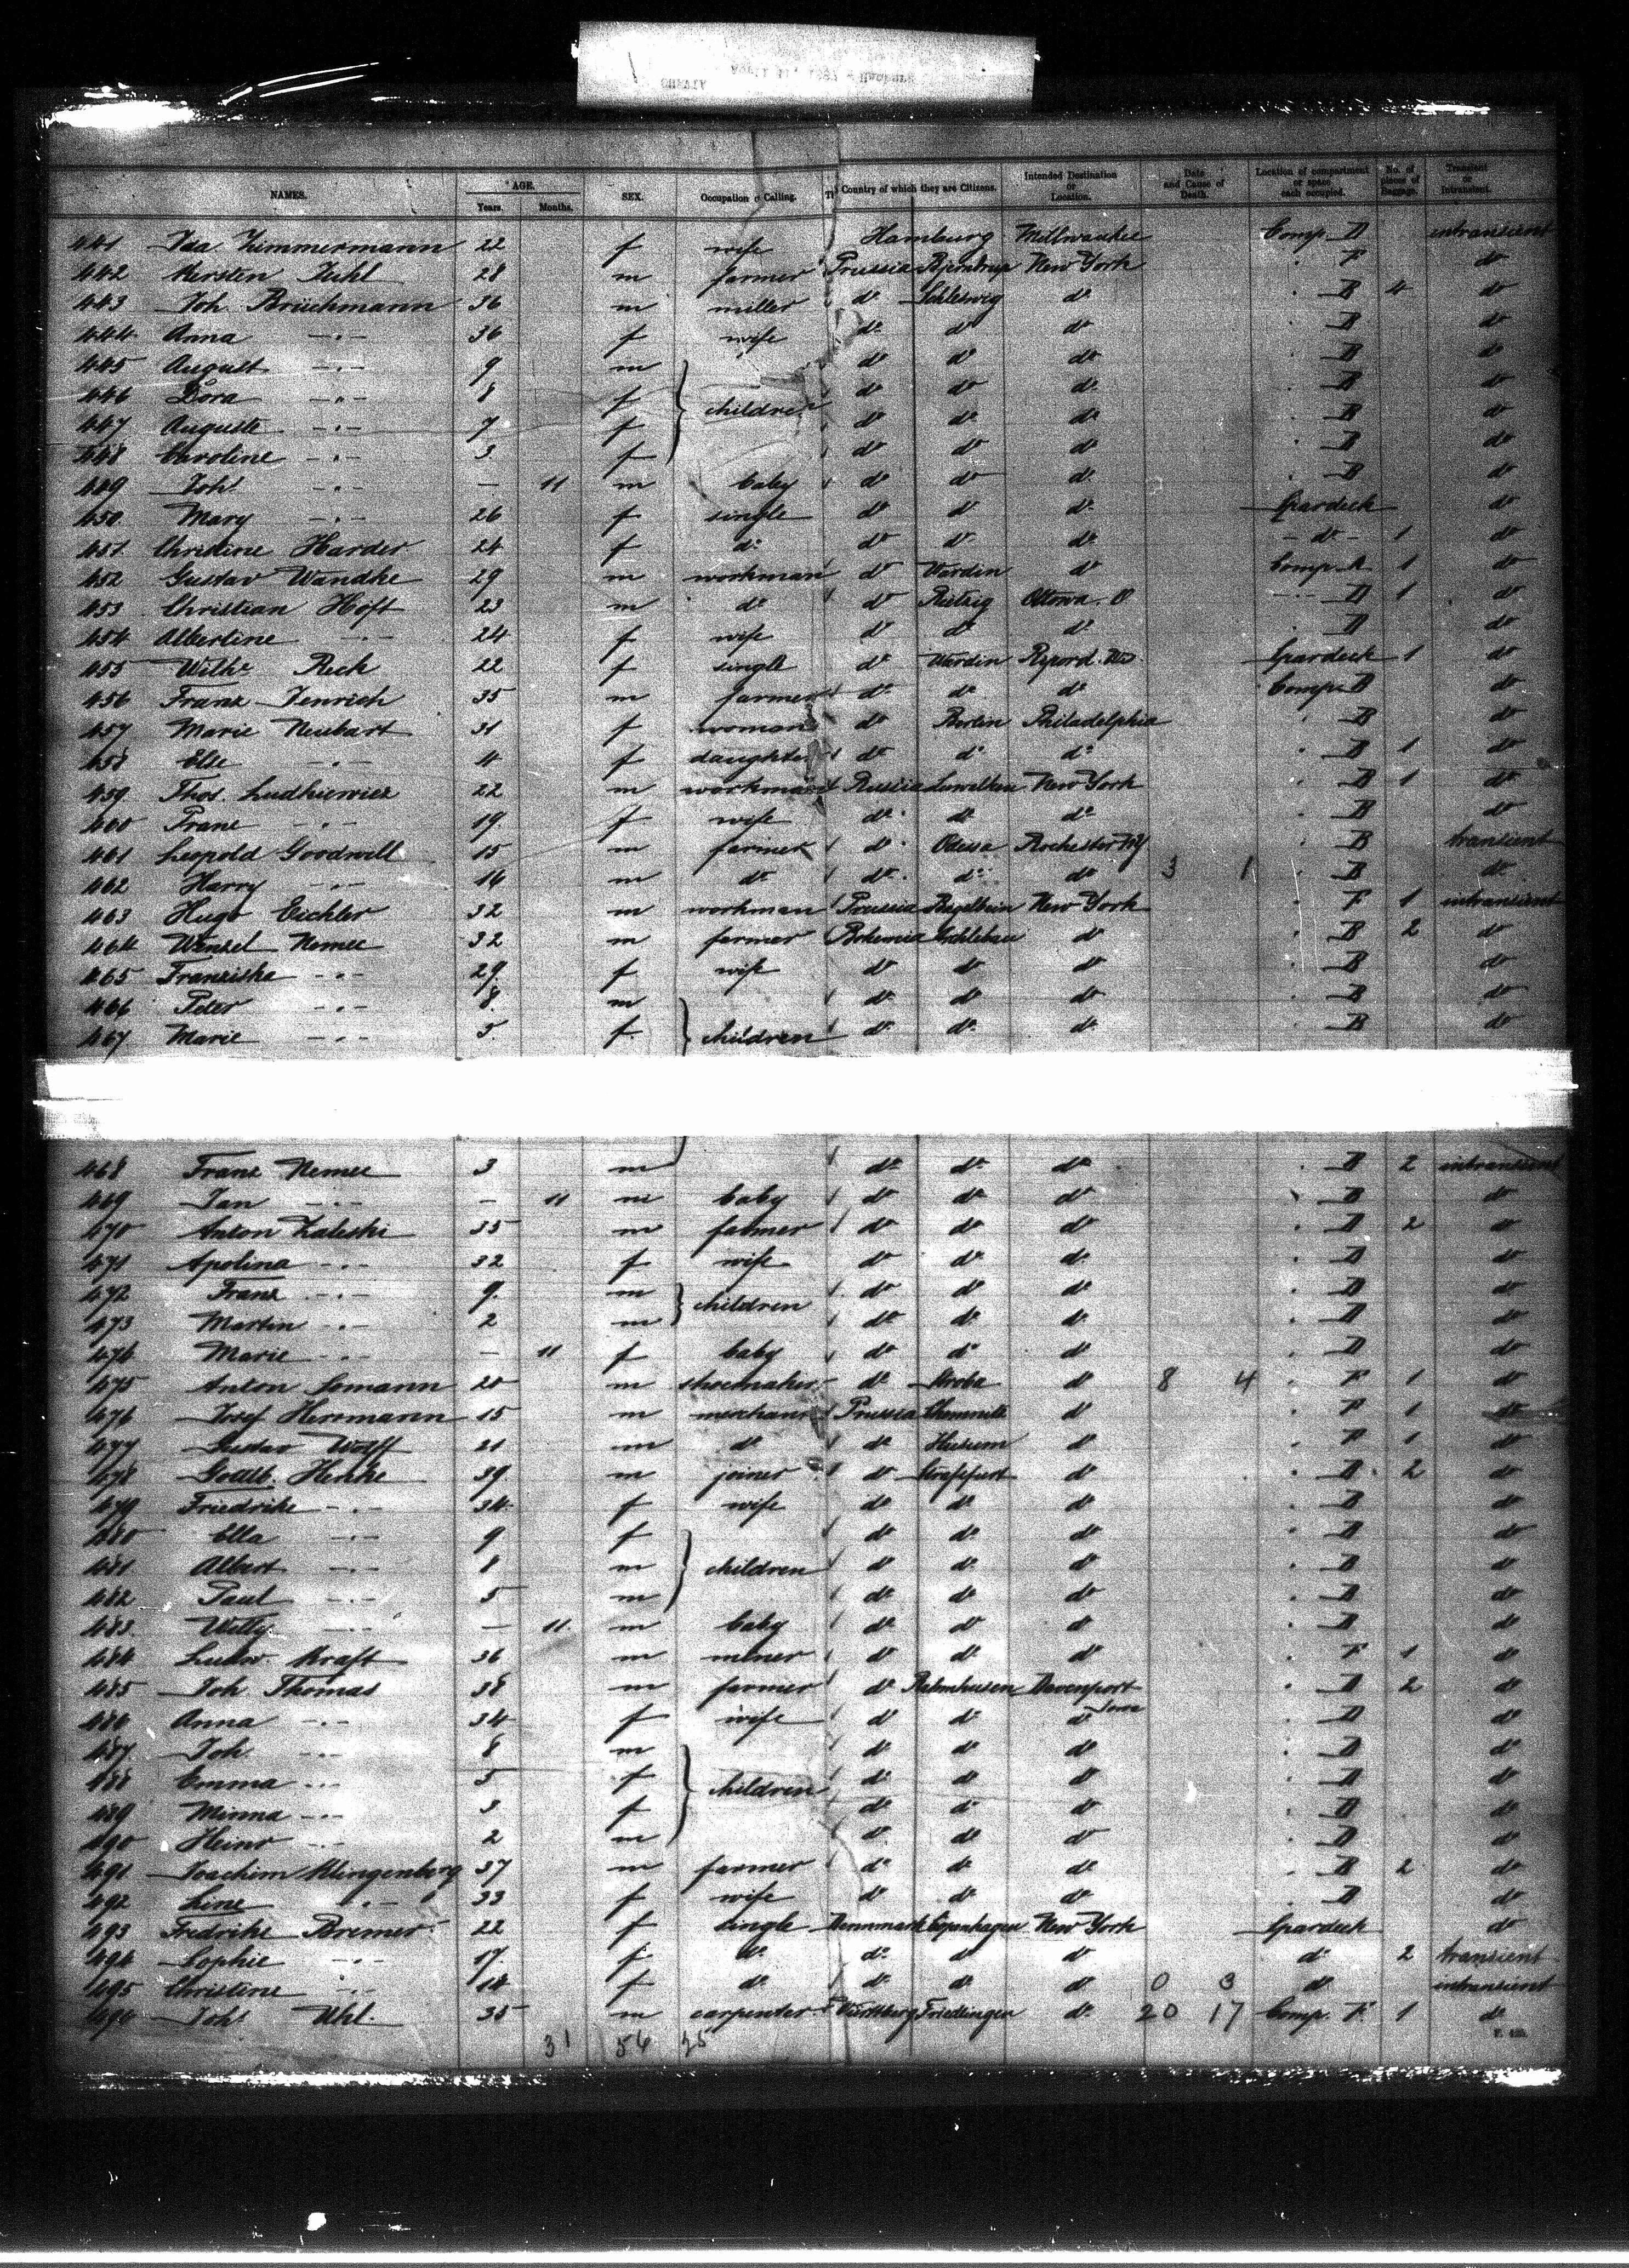 NAMES. AGE. Years. Months. SEX. Occupation or Calling. Country of which they are Citizens. Intended Destination or Location. Date and Cause of Death. Location of compartment or space each occupied. No. of pieces of Baggage. Transient or Intransient.
441 Ida Zimmermann 22 f wife Hamburg Millwaukee Comp. D intransient
442 Kersten Juhl 28 m farmer Prussia New York " F do
443 Joh. Brüchmann 36 m miller do Schleswig do " B 4 do
444 Anna -"- 36 f wife do do do " B do
445 August -"- 9 m do do do " B do
446 Dora -"- 8 f children do do do " B do
447 Auguste -"- 7 f do do do " B do
448 Caroline -"- 3 f do do do " B do
449 Joh. -"- — 11 m baby do do do " B do
450 Mary -"- 26 f single do do do Spardeck do
451 Christine Harder 24 f do do do do - do - 1 do
452 Gustav Wandke 29 m workman do Wardin do Comp. A 1 do
453 Christian Höft 23 m do do Ottowa. O. " D 1 do
454 Albertine -"- 24 f wife do do do " D do
455 Wilhe Reck 22 f single do Wardin Spardeck 1 do
456 Franz Jenrich 35 m farmer do do do Comp. B do
457 Marie Neubart 31 f woman do Berlin Philadelphia " B do
458 Else -"- 4 f daughter do do do " B 1 do
459 Thos. Ludkiewicz 22 m workman Russia New York " B 1 do
460 Franz -"- 19 f wife do do do " B do
461 Leopold Goodwill 15 m farmer do Odessa Rochester NY " B transient
462 Harry -"- 14 m do do do do 3 1 " B do
463 Hugo Eichler 32 m workman Prussia New York " F 1 intransient
464 Wenzel Nemec 32 m farmer Bohemia do " B 2 do
465 Franziska -"- 29 f wife do do do " B do
466 Peter -"- 8 m do do do " B do
467 Marie -"- 5 f children do do do " B do
468 Franz Nemec 3 m do do do " B 2 intransient
469 Jan -"- — 11 m baby do do do " B do
470 Anton Zaleski 35 m farmer do do do " D 2 do
471 Apolina -"- 32 f wife do do do " D do
472 Franz -"- 9 m children do do do " D do
473 Martin -"- 2 m do do do " D do
474 Marie -"- — 11 f baby do do do " D do
475 Anton 20 m shoemaker do do 8 4 " F 1 do
476 Josef Herrmann 15 m merchant Prussia Chemnitz do " F 1 do
477 Gustav Wolff 21 m do do Husum do " F 1 do
478 Gottlb. Henke 39 m joiner do do " D 2 do
479 Friedrike -"- 34 f wife do do do " D do
480 Ella -"- 9 f do do do " D do
481 Albert -"- 8 m children do do do " D do
482 Paul -"- 5 m do do do " D do
483 Willy -"- — 11 m baby do do do " D do
484 Ludw. Kraft 36 m miner do do do " F 1 do
485 Joh. Thomas 38 m farmer do Davenport " D 2 do
486 Anna -"- 34 f wife do do do Iowa " D do
487 Joh. -"- 8 m do do do " D do
488 Emma -"- 5 f children do do do " D do
489 Minna -"- 3 f do do do " D do
490 Heinr -"- 2 m do do do " D do
491 Joachim Klingenberg 37 m farmer do do do " B 2 do
492 Line -"- 33 f wife do do do " D do
493 Fredrike Bremer 22 f single Dennmark Copenhagen New York Spardeck do
494 Sophie -"- 17 f do do do do do 2 transient
495 Christine -"- 18 f do do do do 0 3 do intransient
496 Joh. Uhl. 35 m carpenter Württbrg Friedlingen do 20 17 Comp. F. 1 do
31 56 25